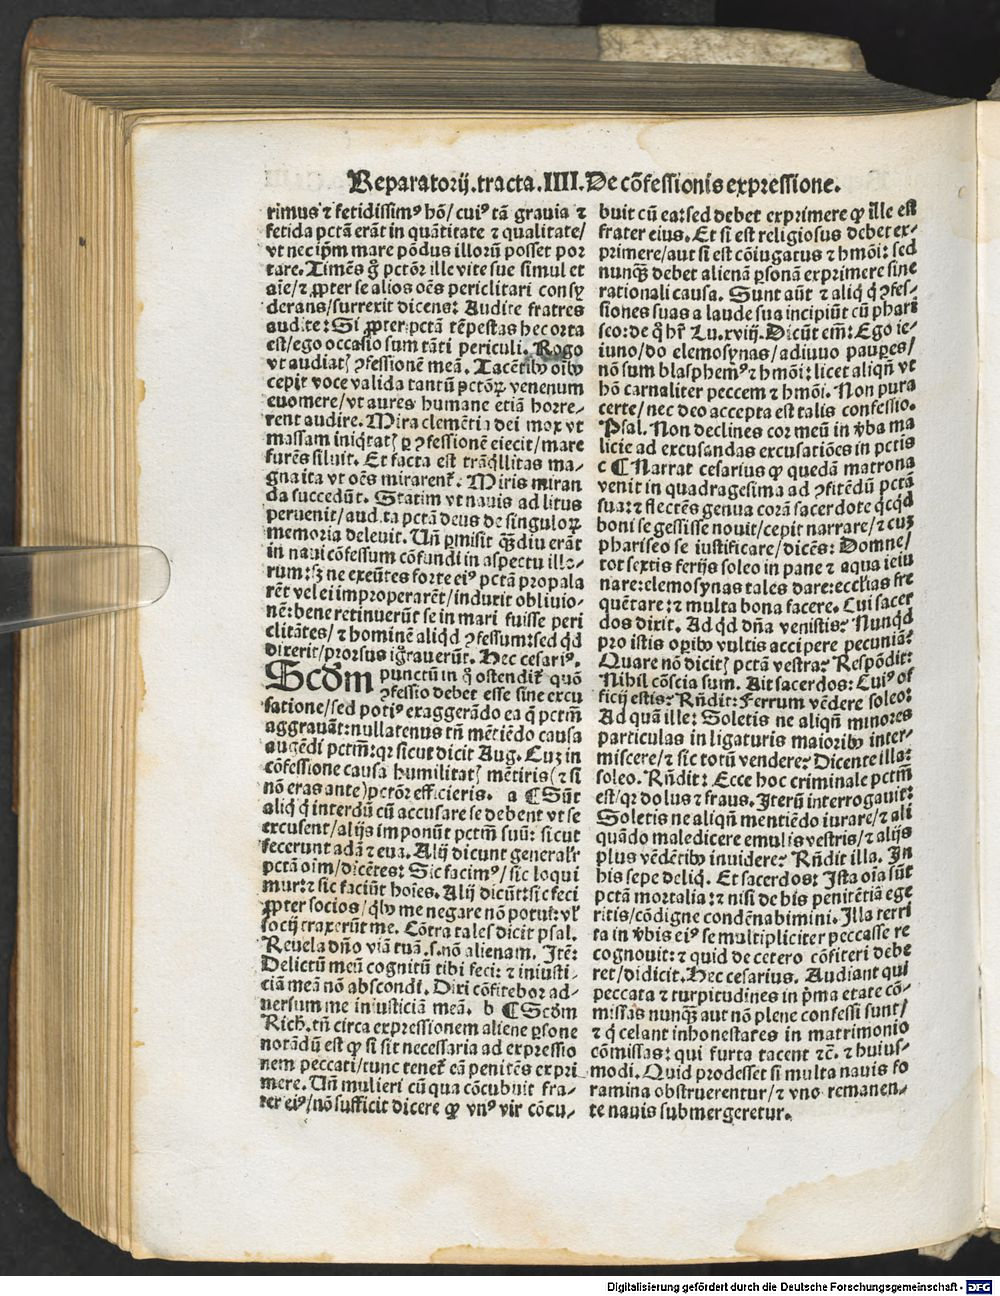 Reparatorij.tracta.IIII.De cõfessionis expressione.
rimus ⁊ fetidissimꝰ hõ/cuiꝰ tã grauia ⁊
fetida pctã erãt in quãtitate ⁊ qualitate/
vt nec ip̃m mare põdus illorũ posset por
tare. Timẽs gͦ pctõr ille vite sue simul et
aĩe/⁊ ꝓpter se alios oẽs periclitari consy
derans/surrexit dicens: Audite fratres
audite: Si ꝓpter pctã tẽpestas hec orta
est/ego occasio sum tãti periculi. Rogo
vt audiatꝭ ꝯfessionẽ meã. Tacẽtibꝰ oĩbꝰ
cepit voce valida tantũ pctõꝝ venenum
euomere/vt aures humane etiã horre-
rent audire. Mira clemẽtia dei mox vt
massam iniq̃tatꝭ ꝑ ꝯfessionẽ eiecit/mare
furẽs siluit. Et facta est trãq̃llitas ma-
gna ita vt oẽs mirarent᷑. Miris miran
da succedũt. Statim vt nauis ad litus
peruenit/audita pctã deus de singuloꝝ
memoria deleuit. Uñ ꝑmisit q̃ȝdiu erãt
in naui cõfessum cõfundi in aspectu illo-
rum: sȝ ne exeũtes forte eiꝰ pctã propala
rẽt vel ei improperarẽt/induxit obliuio-
nẽ: bene retinuerũt se in mari fuisse peri
clitãtes/⁊ hominẽ aliqd ꝯfessum: sed qd
dixerit/prorsus ig̃rauerũt. Hec cesariꝰ.
Scd̃m punctũ in q̃ ostendit᷑ quõ
ꝯfessio debet esse sine excu
satione/sed potiꝰ exaggerãdo ea q̃ pctm̃
aggrauãt: nullatenus tñ mẽtiẽdo causa
augẽdi pctm̃: qꝛ sicut dicit Aug. Cuȝ in
cõfessione causa humilitatꝭ mẽtiris(⁊ si
nõ eras ante)pctõꝛ efficieris. a ¶ Sũt
aliq̃ q̃ interdũ cũ accusare se debent vt se
excusent/alijs imponũt pctm̃ suũ: sicut
fecerunt adã ⁊ eua. Alij dicunt generalr̃
pctã oĩm/dicẽtes: Sic facimꝰ/sic loqui
mur: ⁊ sic faciũt hoĩes. Alij dicũt: sic feci
ꝓpter socios/q̃bꝰ me negare nõ potui: vl̃
socij traxerũt me. Cõtra tales dicit psal.
Reuela dño viã tuã.s.nõ alienam. Itẽ:
Delictũ meũ cognitũ tibi feci: ⁊ iniusti-
ciã meã nõ abscondi. Dixi cõfitebor ad-
uersum me iniusticiã meã. b ¶ Scd̃m
Rich. tñ circa expressionem aliene ꝑsone
notãdũ est ꝙ si sit necessaria ad expressio
nem peccati/tunc tenet᷑ eã penitẽs expri
mere. Uñ mulieri cũ qua cõcubuit fra-
ter eiꝰ/nõ sufficit dicere ꝙ vnꝰ vir cõcu-
buit cũ ea: sed debet exprimere ꝙ ille est
frater eius. Et si est religiosus debet ex-
primere/aut si est cõiugatus ⁊ hmõi: sed
nunq̃ȝ debet alienã ꝑsonã exprimere sine
rationali causa. Sunt aũt ⁊ aliq̃ q̃ ꝯfes-
siones suas a laude sua incipiũt cũ phari
seo: de q̃ hr̃ Lu.xviij. Dicũt em̃: Ego ie-
iuno/do elemosynas/adiuuo pauꝑes/
nõ sum blasphemꝰ ⁊ hmõi: licet aliqñ vt
hõ carnaliter peccem ⁊ hmõi. Non pura
certe/nec deo accepta est talis confessio.
Psal. Non declines cor meũ in v̓ba ma
licie ad excusandas excusatiões in pctis
c ¶ Narrat cesarius ꝙ quedã matrona
venit in quadragesima ad ꝯfitẽdũ pctã
sua: ⁊ flectẽs genua corã sacerdote q̃cq̃d
boni se gessisse nouit/cepit narrare/⁊ cuȝ
phariseo se iustificare/dicẽs: Domne/
tot sextis ferijs soleo in pane ⁊ aqua ieiu
nare: elemosynas tales dare: eccl̃ias fre
quẽtare: ⁊ multa bona facere. Cui sacer
dos dixit. Ad qd dña venistis? Nunqd
pro istis oꝑibꝰ vultis accipere pecuniã?
Quare nõ dicitꝭ pctã vestra? Respõdit:
Nihil cõscia sum. Ait sacerdos: Cuiꝰ of
ficij estis? Rñdit: Ferrum vẽdere soleo:
Ad quã ille: Soletis ne aliqñ minores
particulas in ligaturis maioribꝰ inter-
miscere/⁊ sic totũ vendere? Dicente illa:
soleo. Rñdit: Ecce hoc criminale pctm̃
est/qꝛ dolus ⁊ fraus. Iterũ interrogauit:
Soletis ne aliqñ mentiẽdo iurare/⁊ ali
quãdo maledicere emulis vestris/⁊ alijs
plus vẽdẽtibꝰ inuidere? Rñdit illa. In
his sepe deliq̃. Et sacerdos: Ista oĩa sũt
pctã mortalia: ⁊ nisi de his penitẽtiã ege
ritis/cõdigne condẽnabimini. Illa terri
ta in v̓bis eiꝰ se multipliciter peccasse re
cognouit: ⁊ quid de cetero cõfiteri debe
ret/didicit. Hec cesarius. Audiant qui
peccata ⁊ turpitudines in p̓ma etate cõ-
missas nunq̃ȝ aut nõ plene confessi sunt/
⁊ q̃ celant inhonestates in matrimonio
cõmissas: qui furta tacent ⁊c̃. ⁊ huius-
modi. Quid prodesset si multa nauis fo
ramina obstruerentur/⁊ vno remanen-
te nauis submergeretur.
Digitalisierung gefördert durch die Deutsche Forschungsgemeinschaft - DFG